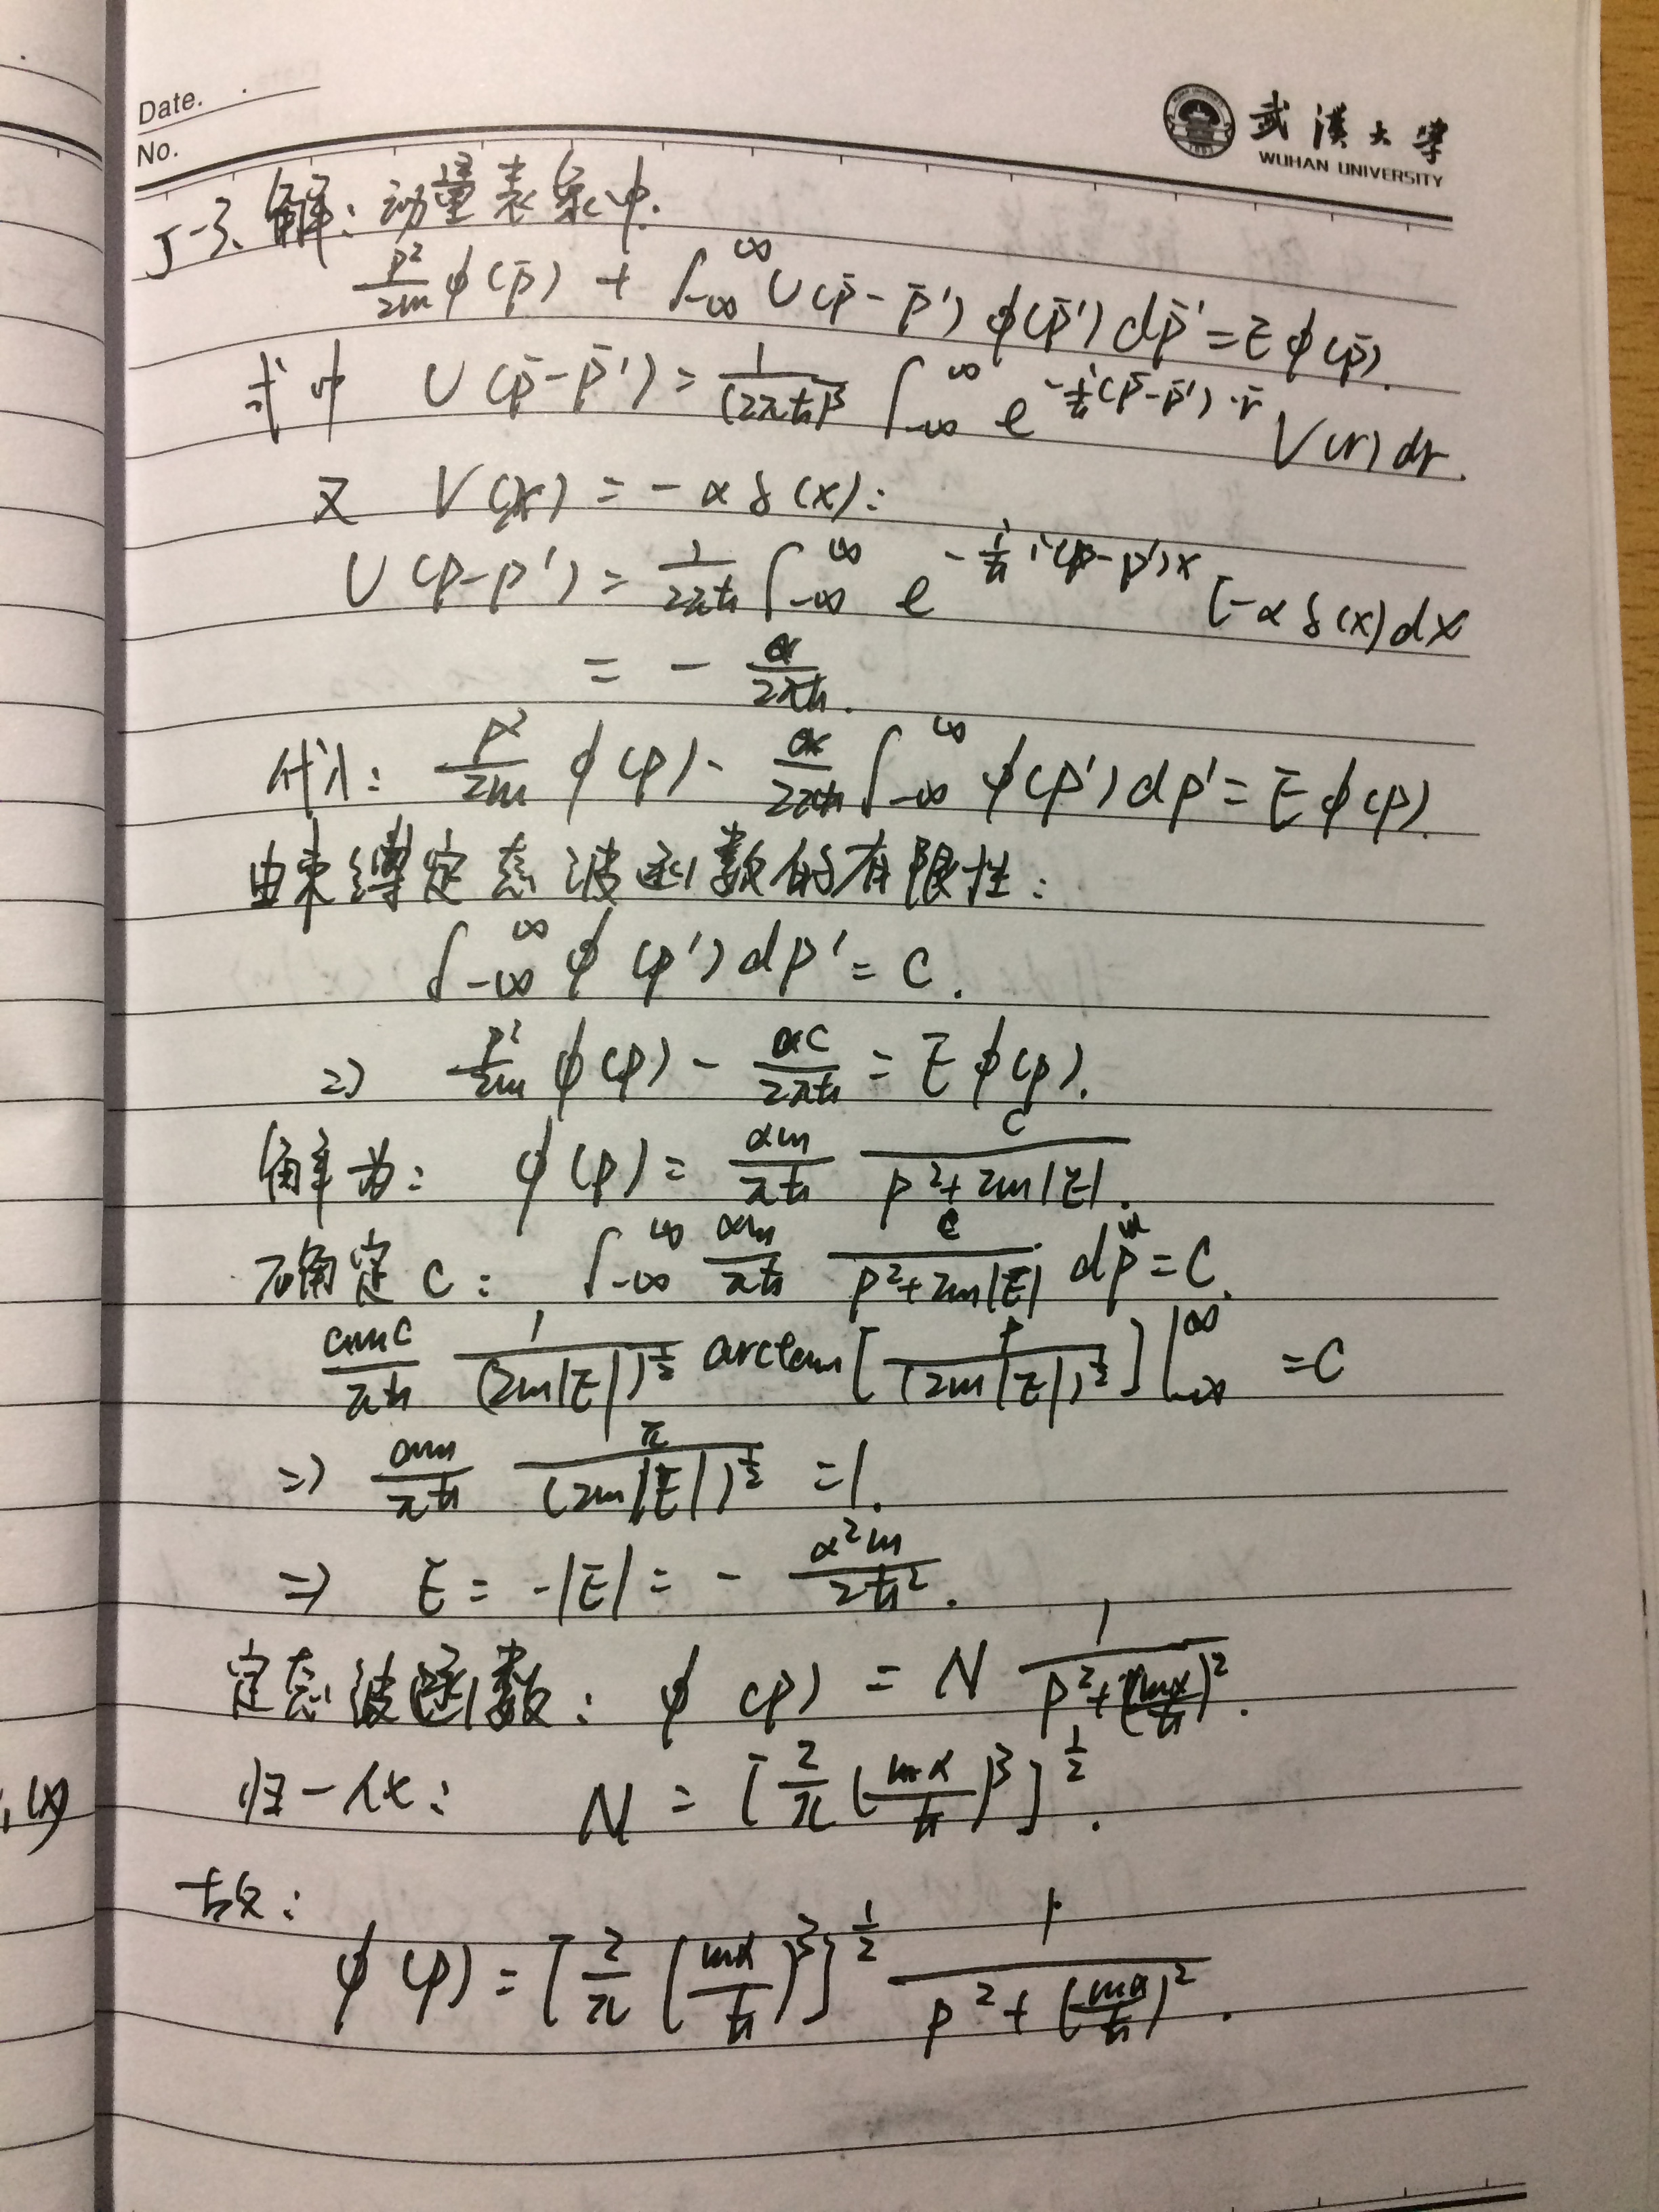 Date.
No.
武汉大学
WUHAN UNIVERSITY
5-3、解：动量表象中.
p²/2m φ(p̄) + ∫_{-∞}^{∞} U(p̄-p̄')φ(p̄')dp̄' = Eφ(p̄).
式中 U(p̄-p̄') = 1/(2πħ)³ ∫_{-∞}^{∞} e^{-i/ħ(p̄-p̄')·r̄} V(r)dr.
又 V(x) = -αδ(x):
U(p-p') = 1/2πħ ∫_{-∞}^{∞} e^{-i/ħ·(p-p')x} [-αδ(x)dx
= - α/2πħ.
代入: p²/2m φ(p) - α/2πħ ∫_{-∞}^{∞} φ(p')dp' = Eφ(p).
由束缚定态波函数的有限性:
∫_{-∞}^{∞} φ(p')dp' = C.
⇒ p²/2m φ(p) - αC/2πħ = Eφ(p).
解为: φ(p) = αm/πħ C/(p²+2m|E|).
确定C: ∫_{-∞}^{∞} αm/πħ C/(p²+2m|E|) dp = C.
αmC/πħ 1/(2m|E|)^{1/2} arctan[p/(2m|E|)^{1/2}]|_{-∞}^{∞} = C
⇒ αm/πħ π/(2m|E|)^{1/2} = 1.
⇒ E = -|E| = - α²m/2ħ².
定态波函数: φ(p) = N 1/(p²+(mα/ħ)²).
归一化: N = [2/π (mα/ħ)³]^{1/2}.
,(x)
故:
φ(p) = [2/π (mα/ħ)³]^{1/2} 1/(p²+(mα/ħ)²).